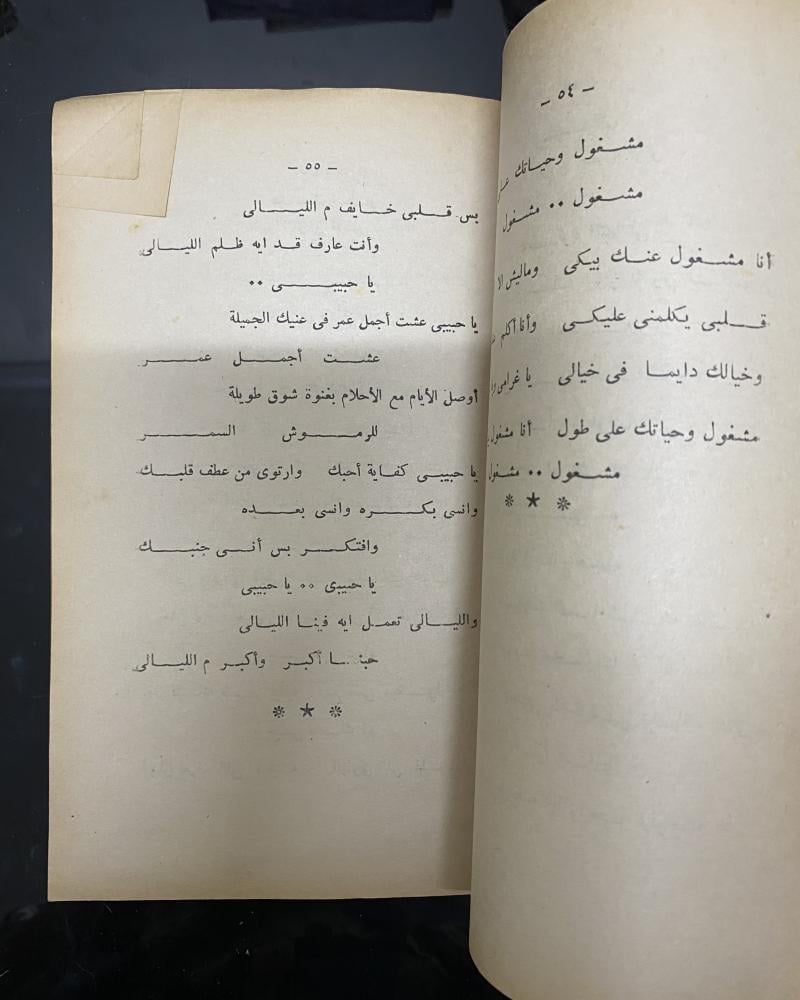 - ٥٤ -
مشغول وحياتك
مشغول ٠٠ مشغول
أنا مشغول عنك بيكى وماليش
قلبى يكلمنى عليكى وأنا أكلم
وخيالك دايما فى خيالى يا غرامى
مشغول وحياتك على طول أنا مشغول
مشغول ٠٠ مشغول
* * *
- ٥٥ -
بس قلبى خايف م الليالى
وأنت عارف قد ايه ظلم الليالى
يا حبيبى ٠٠
يا حبيبى عشت أجمل عمر فى عنيك الجميلة
عشت أجمل عمر
أوصل الأيام مع الأحلام بغنوة شوق طويلة
للرموش السمر
يا حبيبى كفاية أحبك وارتوى من عطف قلبك
وانسى بكره وانسى بعده
وافتكر بس أنى جنبك
يا حبيبى ٠٠ يا حبيبى
والليالى تعمل ايه فينا الليالى
أكبر وأكبر م الليالى
* * *